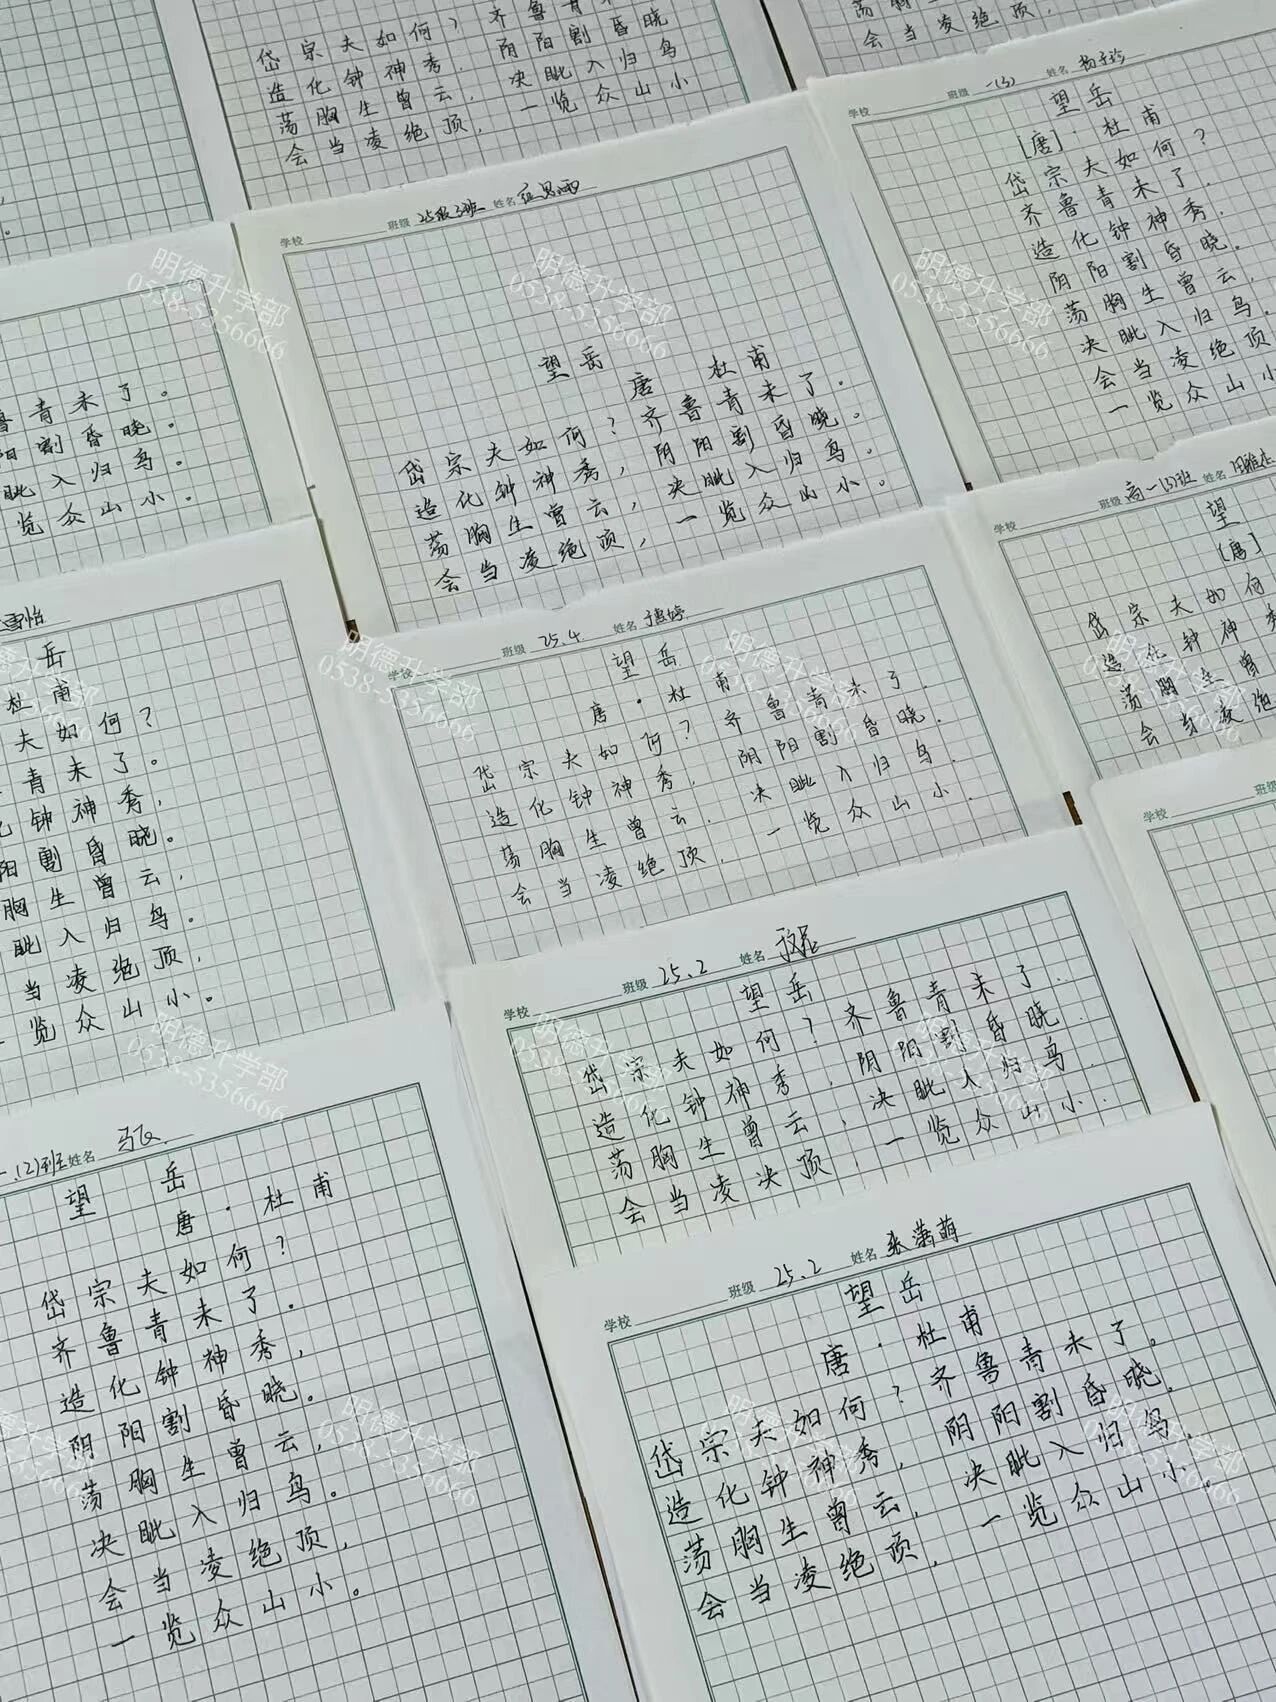 岱宗夫如何？齐鲁青未
造化钟神秀，阴阳割昏晓
荡胸生曾云，决眦入归鸟
会当凌绝顶，一览众山小
会当凌绝顶，
学校 班级 一(3) 姓名
望岳
[唐]·杜甫
岱宗夫如何？
齐鲁青未了，
造化钟神秀，
阴阳割昏晓。
荡胸生曾云，
决眦入归鸟，
会当凌绝顶
一览众山小
学校 班级 25级3班 姓名
望岳
唐 杜甫
岱宗夫如何？齐鲁青未了。
造化钟神秀，阴阳割昏晓。
荡胸生曾云，决眦入归鸟。
会当凌绝顶，一览众山小。
鲁青未了。
阳割昏晓。
眦入归鸟。
览众山小。
学校 班级 高一(3)班 姓名
望
[唐]
岱宗夫如何
造化钟神秀
荡胸生曾
会当凌绝
雪怡
岳
杜甫
夫如何？
青未了。
化钟神秀，
阳割昏晓。
胸生曾云，
眦入归鸟。
当凌绝顶，
览众山小。
学校 班级 25.4 姓名
望岳
唐·杜甫
岱宗夫如何？齐鲁青未了，
造化钟神秀，阴阳割昏晓，
荡胸生曾云，决眦入归鸟，
会当凌绝顶，一览众山小，
学校 班级
学校 班级 25.2 姓名
望岳
岱宗夫如何？齐鲁青未了，
造化钟神秀，阴阳割昏晓，
荡胸生曾云，决眦入归鸟
会当凌决顶，一览众山小
(2)班 姓名
望岳
唐·杜甫
岱宗夫如何？
齐鲁青未了。
造化钟神秀，
阴阳割昏晓。
荡胸生曾云，
决眦入归鸟。
会当凌绝顶，
一览众山小。
学校 班级 25.2 姓名 张潇萌
望岳
唐·杜甫
岱宗夫如何？齐鲁青未了。
造化钟神秀，阴阳割昏晓。
荡胸生曾云，决眦入归鸟，
会当凌绝顶，一览众山小。
明德升学部
0538-5356666